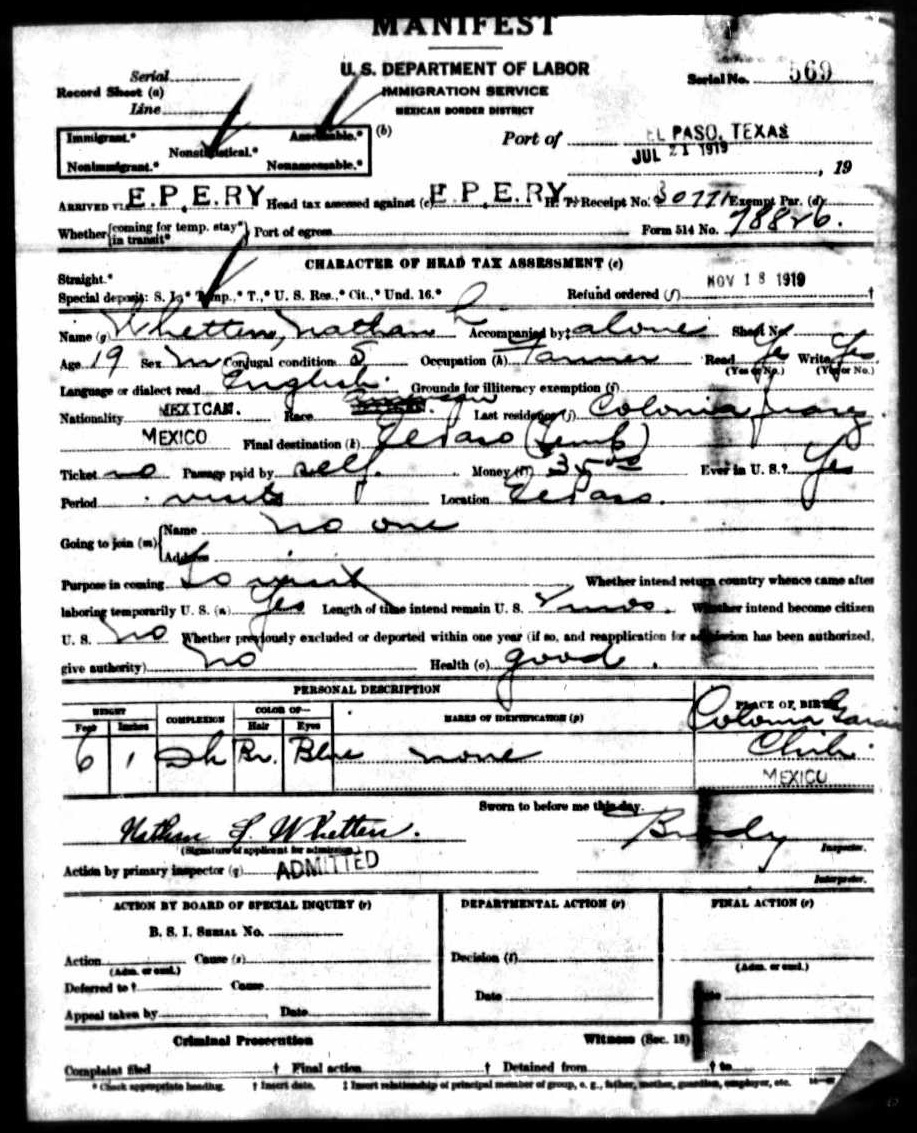 MANIFEST
U. S. DEPARTMENT OF LABOR
IMMIGRATION SERVICE
MEXICAN BORDER DISTRICT
Serial
Record Sheet (a)
Line
Serial No. 569
Immigrant.* Assessable.* (b)
Nonstatistical.*
Nonimmigrant.* Nonassessable.*
Port of EL PASO, TEXAS
JUL 21 1919 , 19
ARRIVED VIA E.P.E.RY Head tax assessed against (c) E P E.RY H. T. Receipt No. Exempt Par. (d)
Whether {coming for temp. stay* in transit*} Port of egress Form 514 No. 78826.
CHARACTER OF HEAD TAX ASSESSMENT (e)
Straight.*
Special deposit: S. I.,* Temp.,* T.,* U. S. Res.,* Cit.,* Und. 16.* Refund ordered (f) NOV 18 1919 †
Name (g) Whetten, Nathan L. Accompanied by‡ alone Sheet No.
Age 19 Sex m Conjugal condition S Occupation (h) Read Yes Write Yes
(Yes or No.) (Yes or No.)
Language or dialect read English. Grounds for illiteracy exemption (i)
Nationality MEXICAN. Race Last residence (j) Colonia Juarez.
MEXICO Final destination (k) El Paso (Temp)
Ticket no Passage paid by self. Money (l) 35 00 Ever in U. S.? Yes
Period visits Location El Paso.
Going to join (m) {Name no one
Address
Purpose in coming To visit Whether intend return country whence came after
laboring temporarily U. S. (n) Yes Length of time intend remain U. S. mos. Whether intend become citizen
U. S. No Whether previously excluded or deported within one year (if so, and reapplication for admission has been authorized,
give authority) No Health (o) good.
PERSONAL DESCRIPTION
HEIGHT COMPLEXION COLOR OF— MARKS OF IDENTIFICATION (p) PLACE OF BIRTH
Feet Inches Hair Eyes Colonia Garcia
6 1 Br. Blue none Chih.
MEXICO
Sworn to before me this day.
Nathan L. Whetten. Brody
(Signature of applicant for admission.) Inspector.
Action by primary inspector (q) ADMITTED
Interpreter.
ACTION BY BOARD OF SPECIAL INQUIRY (r) DEPARTMENTAL ACTION (r) FINAL ACTION (r)
B. S. I. SERIAL No.
Action Cause (s) Decision (t)
(Adm. or excl.) (Adm. or excl.)
Deferred to † Cause Date Date
Appeal taken by Date
Criminal Prosecution Witness (Sec. 18)
Complaint filed † Final action † Detained from † to
* Check appropriate heading. † Insert date. ‡ Insert relationship of principal member of group, e. g., father, mother, guardian, employer, etc.